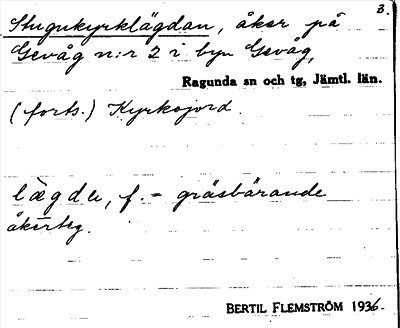 3.
Stugukyrklägdan, åker på
Gevåg n:r 2 i byn Gevåg,
Ragunda sn och tg, Jämtl. län.
(forts.) Kyrkojord.
lægde, f. = gräsbärande
åkerteg.
BERTIL FLEMSTRÖM 1936.